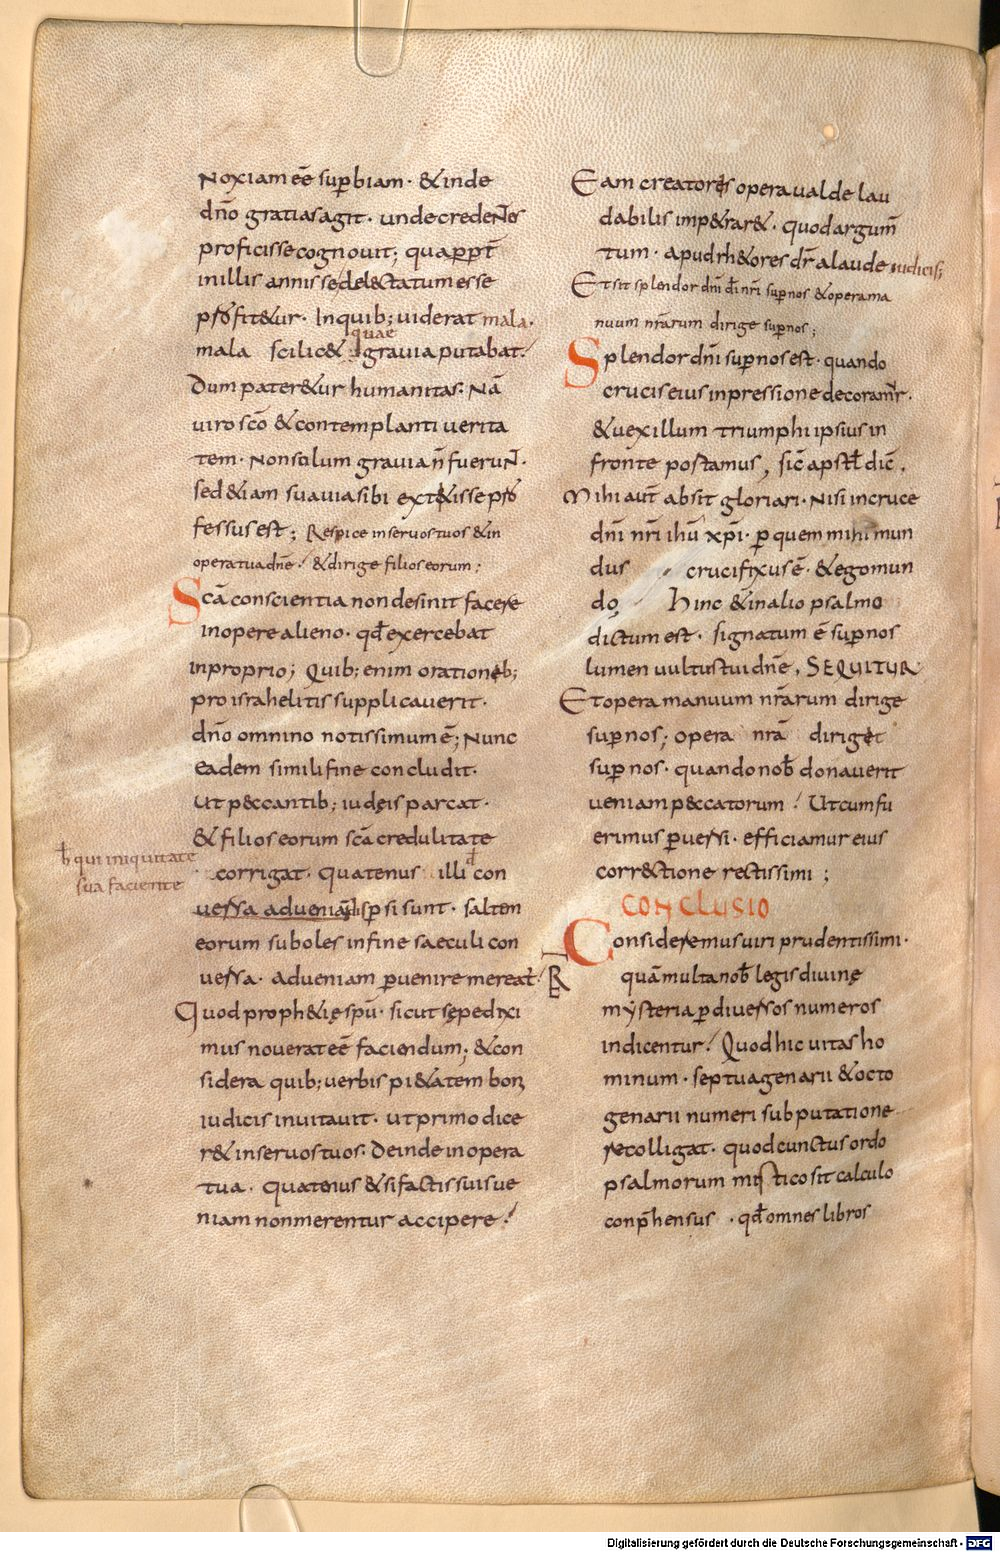 Noxiam eē suꝑbiam · & inde
dn̄o gratias agit · unde credeNtes
proficisse cognouit; qua ꝓpt̄
in illis annis se delectatum esse
profit&ur · In quib; uiderat mala ·
quae
mala scilic& gravia putabat ·
Dum pater&ur humanitas · Nā
uiro scō & contemplanti uerita
tem · Non solum gravia n̄ fueruN̄ ·
sed &iam suavia sibi extetisse pro
fessus est; Respice in servos tuos & in
opera tua dn̄e · & dirige filios eorum;
Scā conscientia non desinit facere
in opere alieno · qđ exercebat
in proprio; Quib; enim orationib;
pro israhelitis supplicaverit ·
dn̄o omnino notissimum ē; Nunc
eadem simili fine concludit ·
Ut peccantib; iudęis parcat ·
& filios eorum scā credulitate
ƀ qui iniquitate
sua faciente
corrigat · quatenus illi qđ con
uersa adueniam ipsi sunt · saltem
eorum suboles in fine saeculi con
uersa · adueniam ꝑuenire mereat̄ ·
Quod proph&ię spū · sicut sępe dixi
mus noverat eē faciendum; & con
sidera quib; uerbis pi&atem boni
iudicis invitavit · ut primo dice
r& in servos tuos · Deinde in opera
tua · quatenus & si factis suis ue
niam non merentur accipere ·
Eam creatoris opera ualde lau
dabilis imp&rar& · quod argum̄
tum · apud rh&ores dr̄ a laude iudicis;
Et sit splendor dn̄i dī nr̄i suꝑ nos & opera ma
nuum nr̄arum dirige suꝑ nos;
Splendor dn̄i suꝑ nos est · quando
crucis eius inpressione decoramr̄ ·
& uexillum triumphi ipsius in
fronte postamus, sic̄ apstl̄ dic̄ ·
Mihi aut̄ absit gloriari · Nisi in cruce
dn̄i nr̄i ihū xp̄i · ꝑ quem mihi mun
dus crucifixus ē · & ego mun
do Hinc & in alio psalmo
dictum est · signatum ē suꝑ nos
lumen uultus tui dn̄e, SEQUITUR
Et opera manuum nr̄arum dirige
suꝑ nos; opera nr̄ā diriget
suꝑ nos · quando nob̄ donaverit
ueniam peccatorum · Ut cum fu
erimus ꝑuersi · efficiamur eius
correctione rectissimi;
CONCLUSIO
Consideremus uiri prudentissimi ·
quā multa nob̄ legis divinę
mysteria ꝑ diversos numeros
indicentur · Quod hic uitas ho
minum · septuagenarii & octo
genarii numeri subputatione
recolligat · quod cunctus ordo
psalmorum mistico sit calculo
conp̄hensus · qđ omnes libros
Digitalisierung gefördert durch die Deutsche Forschungsgemeinschaft - DFG